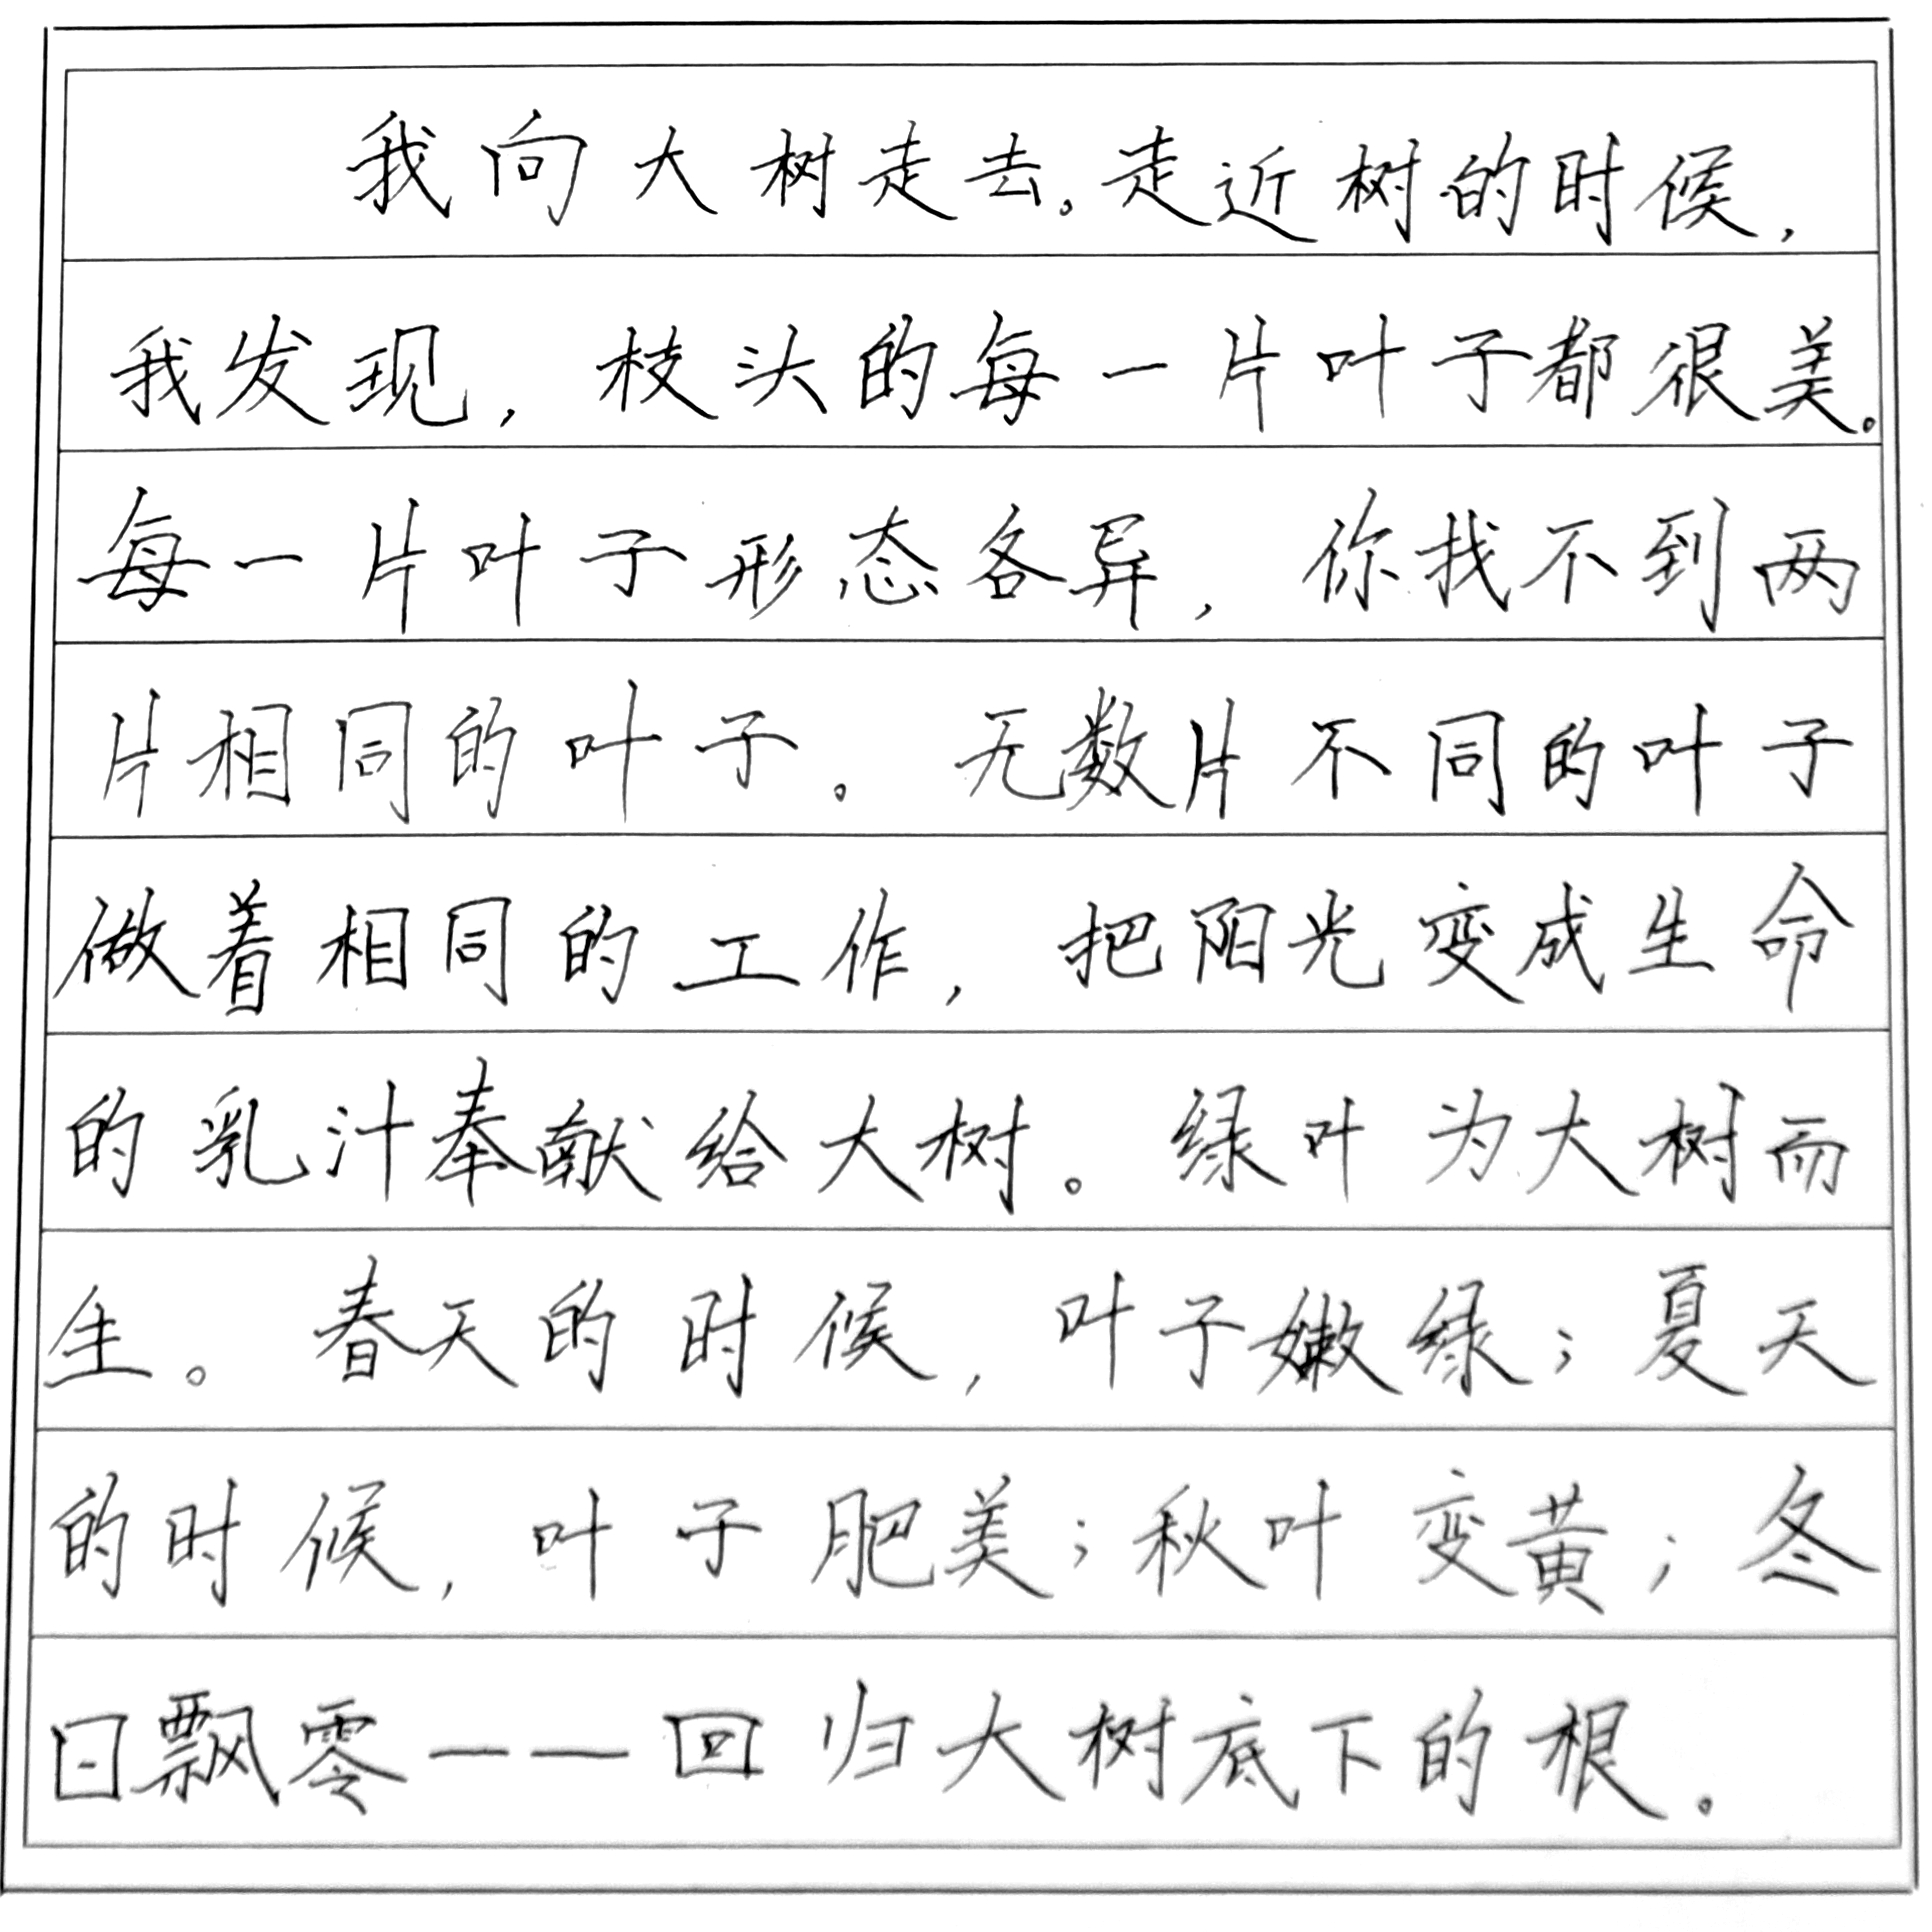 我向大树走去。走近树的时候，
我发现，枝头的每一片叶子都很美。
每一片叶子形态各异，你找不到两
片相同的叶子。无数片不同的叶子
做着相同的工作，把阳光变成生命
的乳汁奉献给大树。绿叶为大树而
生。春天的时候，叶子嫩绿；夏天
的时候，叶子肥美；秋叶变黄；冬
日飘零——回归大树底下的根。